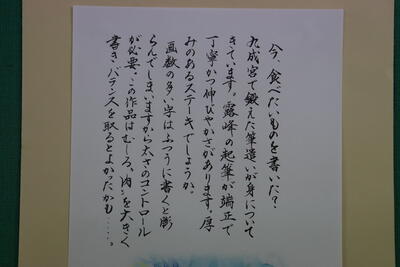 今、食べたいものを書いた?
九成宮で鍛えた筆遣いが身について
きています。露峰の起筆が端正で
丁寧かつ伸びやかさがあります。厚
みのあるステーキでしょうか。
画数の多い字はふつうに書くと膨
らんでしまいますから太さのコントロール
が必要。この作品はむしろ、肉を大きく
書き、バランスを取るとよかったかも……。